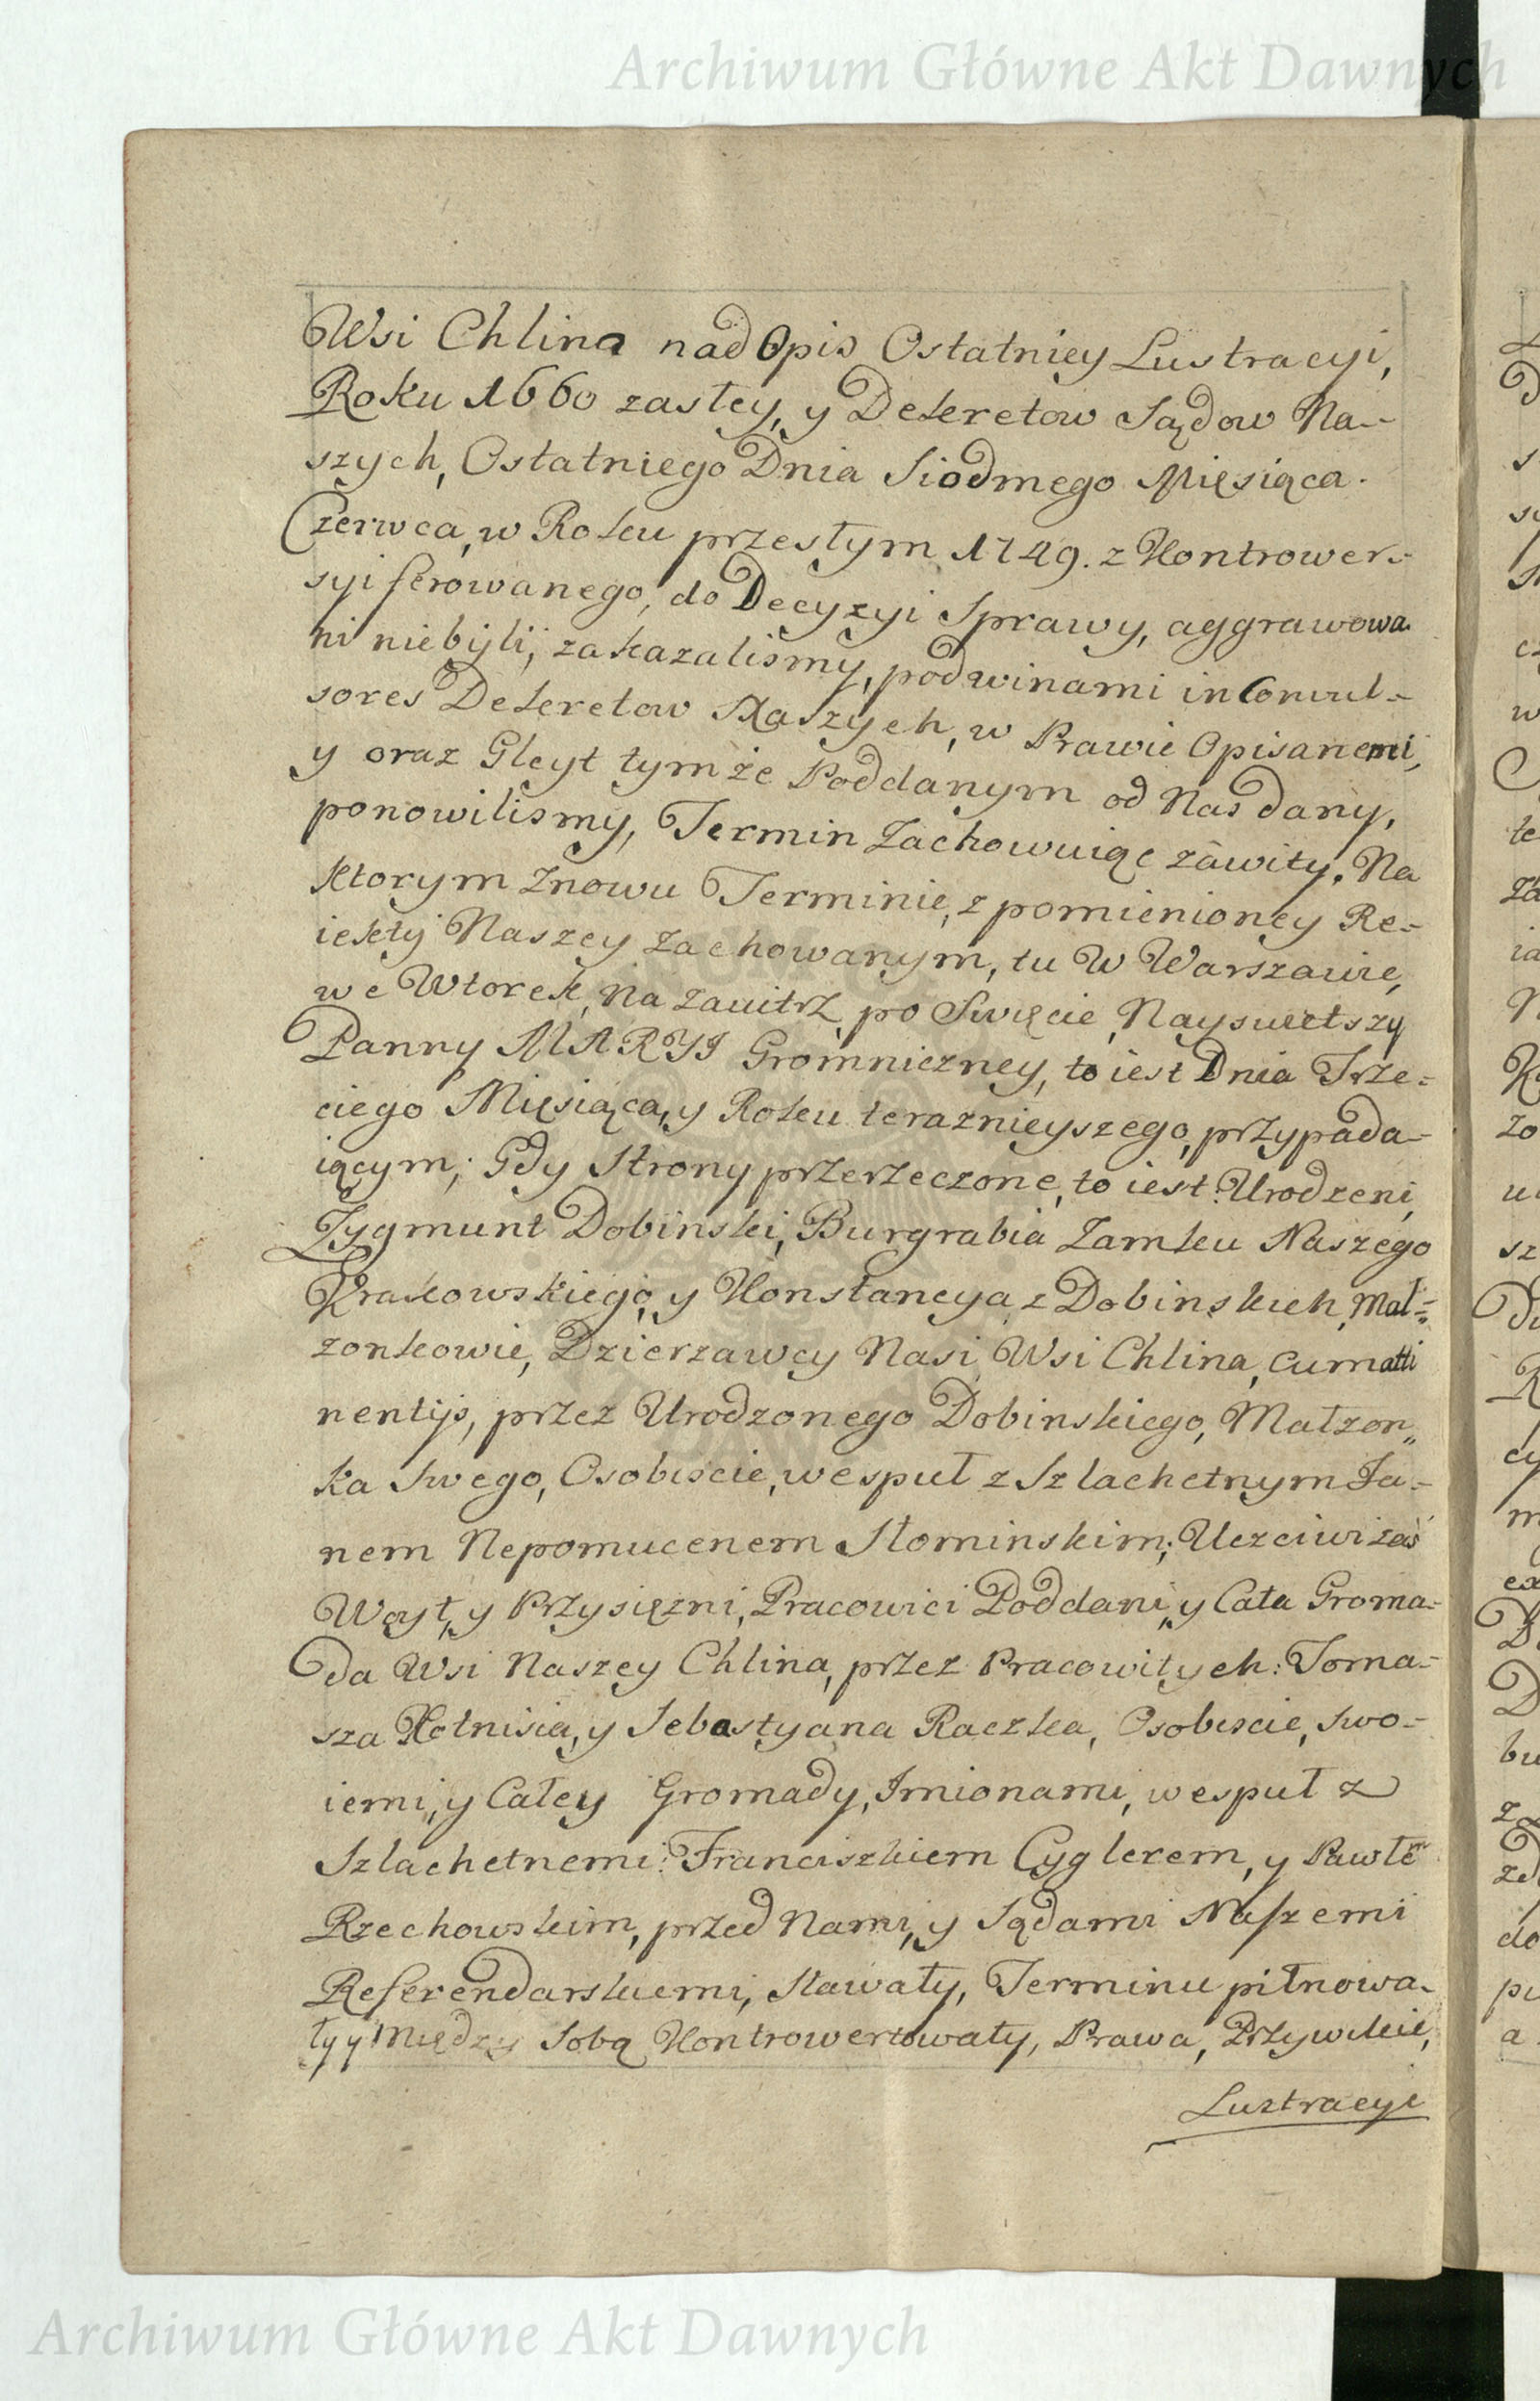 Archiwum Główne Akt Dawnych
Wsi Chlina nad Opis Ostatniey Lustracyi,
Roku 1660 zaszłey, y Dekretow Sądow Na-
szych, Ostatniego Dnia Siodmego Miesiąca
Czerwca, w Roku przeszłym 1749. z Kontrower-
syi ferowanego, do Decyzyi Sprawy, aggrawowa
ni niebyli, zakazalismy, pod winami in Convul-
sores Dekretow Naszych, w Prawie Opisanemi,
y oraz Gleyt tymże Poddanym od Nas dany,
ponowilismy, Termin Zachowuiąc zawity. Na
ktorym Znowu Terminie, z pomienioney Re-
iekty Naszey Zachowanym, tu w Warszawie,
we Wtorek, na Zauitrz, po Swięcie Nayswietszy
Panny MARYI Gromniczney, to iest Dnia Trze-
ciego Miesiąca, y Roku teraznieyszego, przypada-
iącym; Gdy Strony przerzeczone, to iest: Urodzeni,
Zygmunt Dobinski, Burgrabia Zamku Naszego
Krakowskiego, y Konstancya z Dobinskich, Mał-
żonkowie, Dzierzawcy Nasi, Wsi Chlina, cum atti
nentijs, przez Urodzonego Dobinskiego, Małzon-
ka Swego, Osobiscie, wespuł z Szlachetnym Ja-
nem Nepomucenem Słominskim; Uczciwi zaś
Woyt, y Przysiężni, Pracowici Poddani, y Cała Groma-
da Wsi Naszey Chlina, przez Pracowitych: Toma-
sza Kotnisia, y Sebastyana Raczka, Osobiscie, Swo-
iemi, y Całey Gromady, Imionami, wespuł z
Szlachetnemi: Franciszkiem Cyglerem, y Pawłe
Rzechowskim, przed Nami, y Sądami Naszemi
Referendarskiemi, Stawały, Terminu pilnowa-
ły y między Sobą Kontrowertowały, Prawa, Przywileie,
Lustracye
Archiwum Główne Akt Dawnych